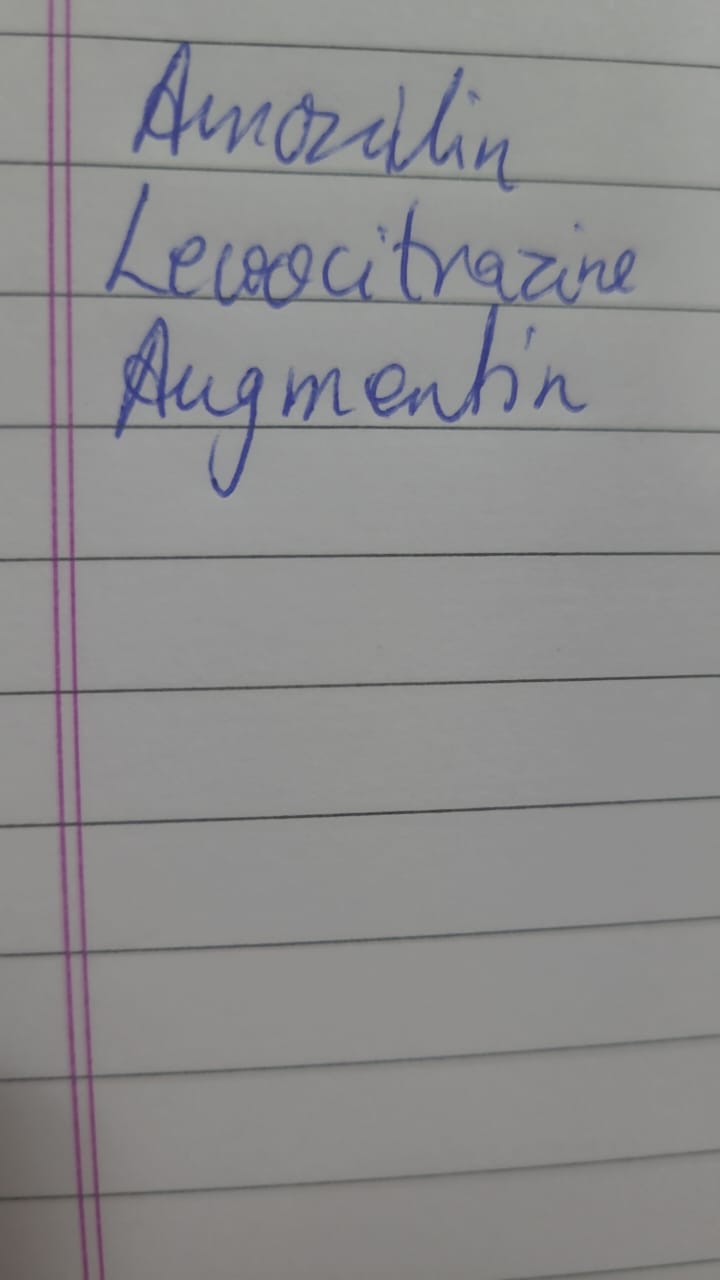 Amoxilin
Levocitrazine
Augmentin